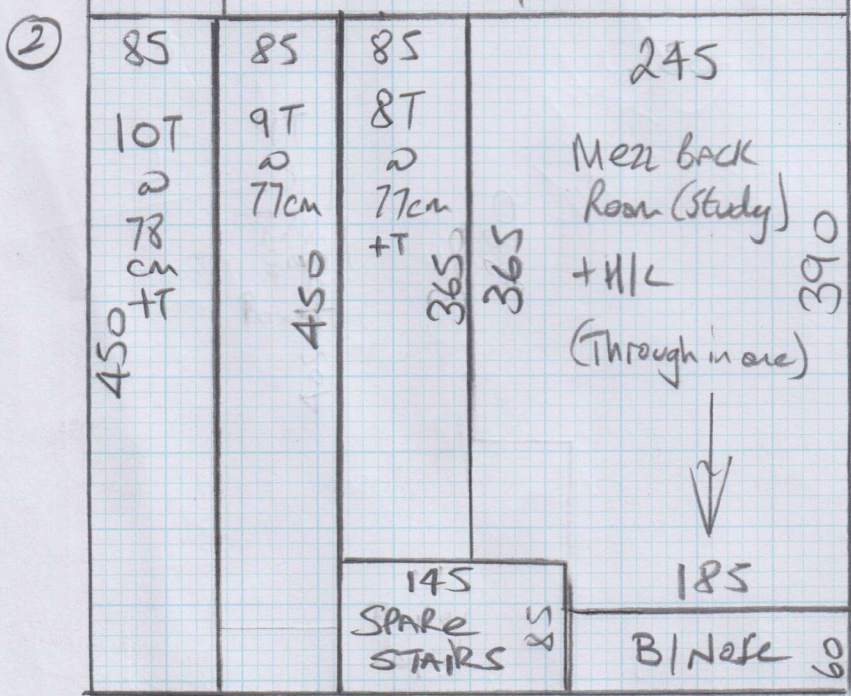 2
85
10T
@
78
cm
+T
450
85
9T
@
77cm
450
85
8T
@
77cm
+T
365
245
Mezz BACK
Room (Study)
+ H/L
(Through in one)
365
390
185
145
SPARE
STAIRS
85
B/Nose
60